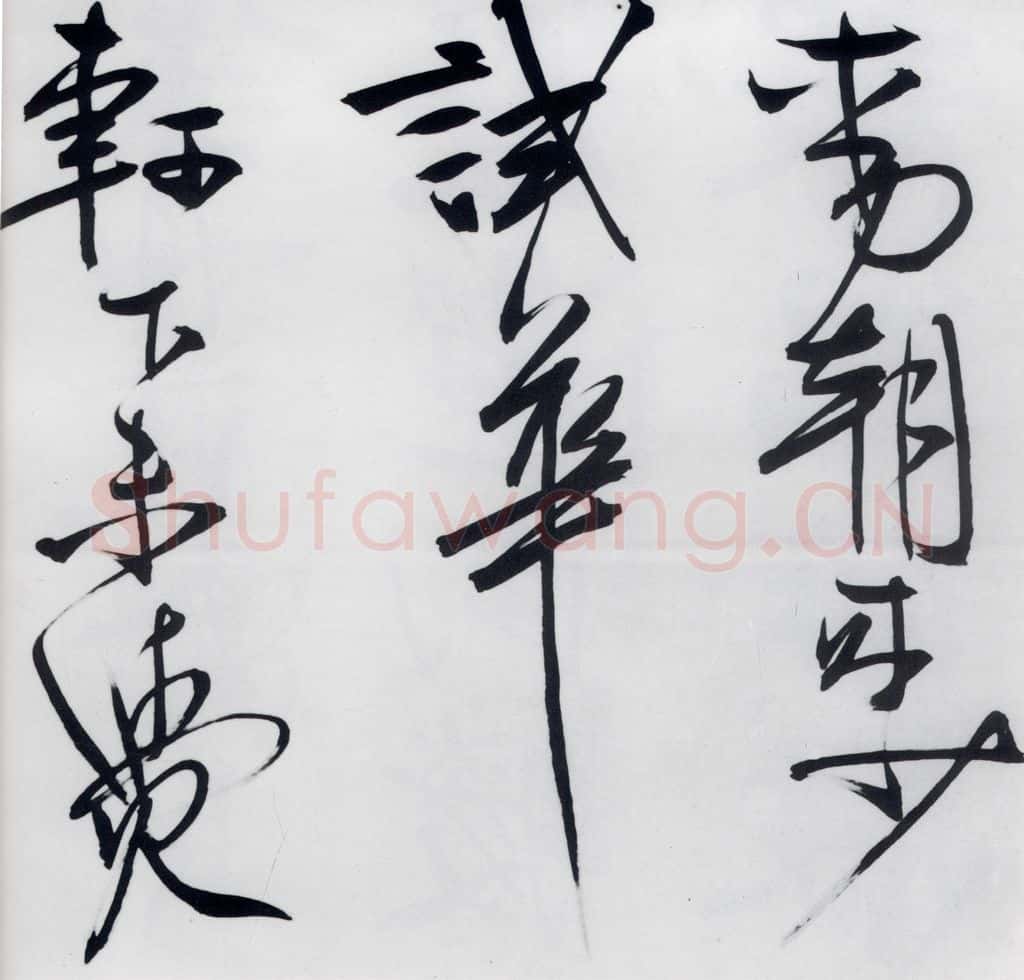 朝時少
試華
軒下未費
Shufawang.CN